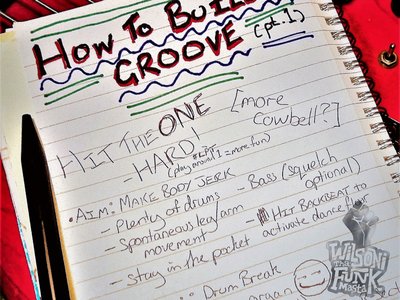 How To Buil
GROOVE (pt.1)
HIT THE ONE [more cowbell?]
HARD!
(play around 1 = more fun)
• AIM: MAKE BODY JERK
- Plenty of drums
- Bass (squelch optional)
- Spontaneous leg/arm movement
- HIT BACKBEAT to activate dance floor
- Stay in the pocket
: Drum Break
WILSON
tha
FUNK
Masta